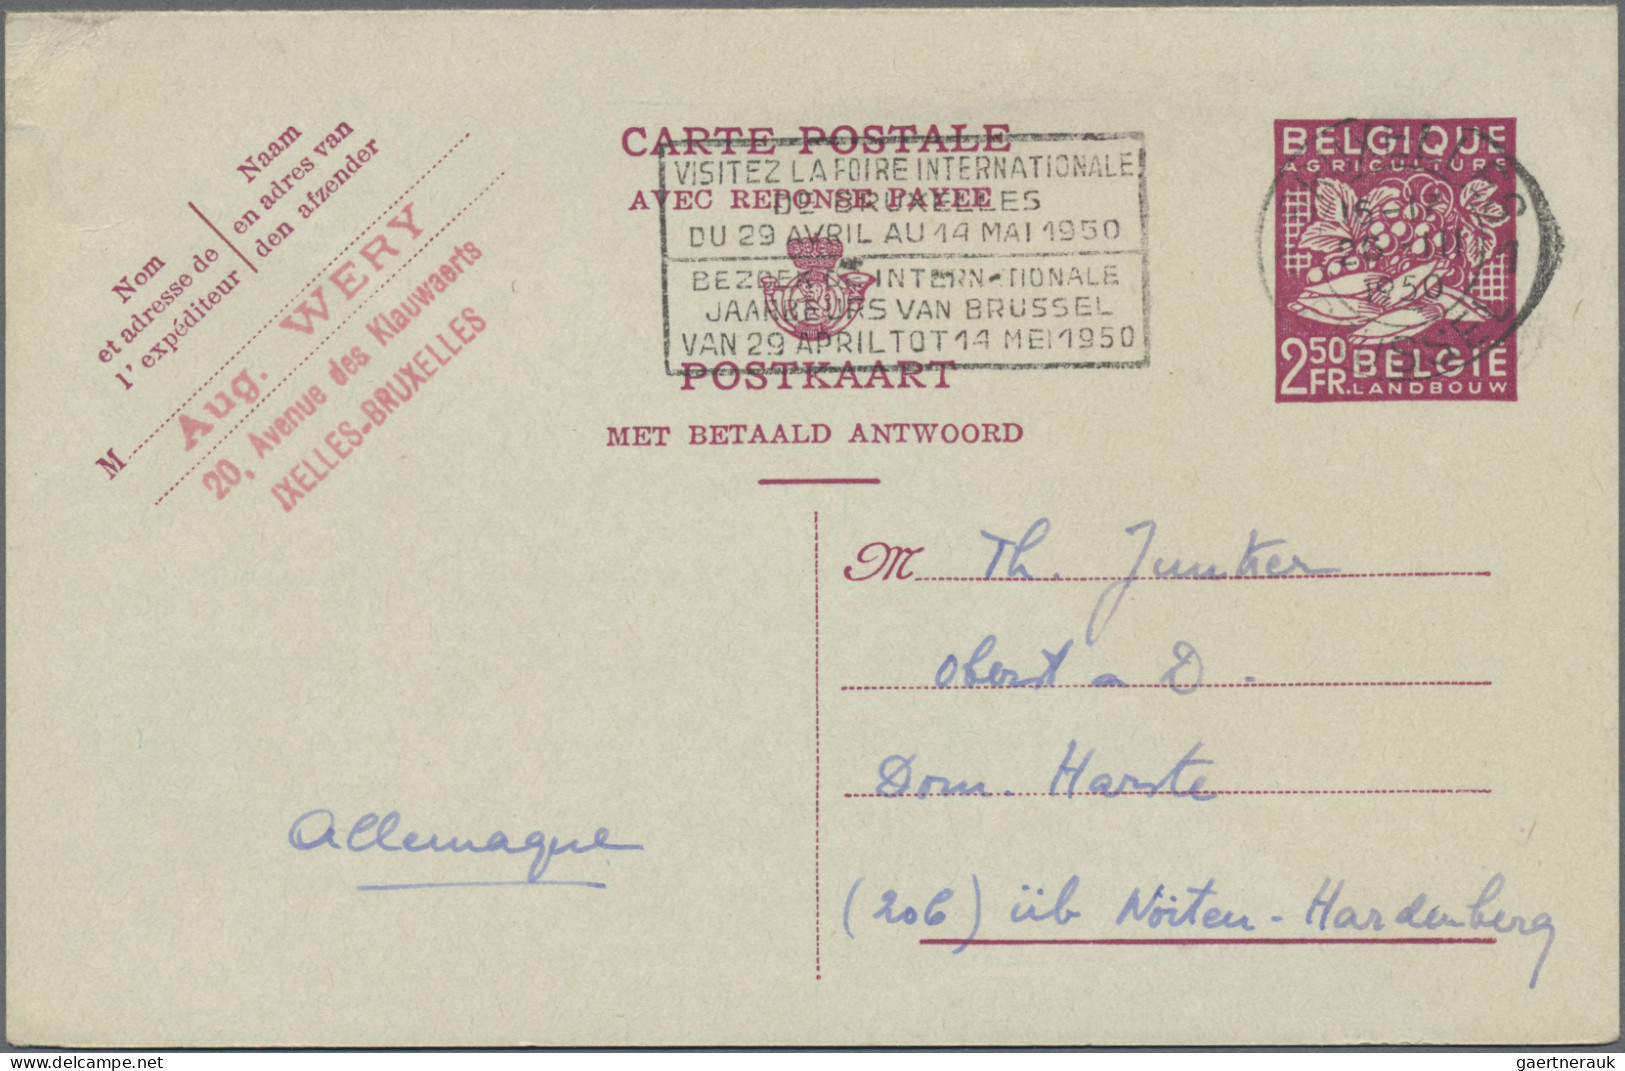 Nom
et adresse de
l'expéditeur
Naam
en adres van
den afzender
M
Aug. WERY
20, Avenue des Klauwaerts
IXELLES-BRUXELLES
CARTE POSTALE
AVEC REPONSE PAYEE
VISITEZ LA FOIRE INTERNATIONALE
DE BRUXELLES
DU 29 AVRIL AU 14 MAI 1950
BEZOEK DE INTERNATIONALE
JAARBEURS VAN BRUSSEL
VAN 29 APRIL TOT 14 MEI 1950
POSTKAART
MET BETAALD ANTWOORD
BELGIQUE
AGRICULTURE
1950
250 BELGIE
FR. LANDBOUW
M Th. Junker
Oberst a D.
Dom. Harste
(20b) üb Nöiten-Hardenberg
Allemagne
www.delcampe.net
gaertnerauk